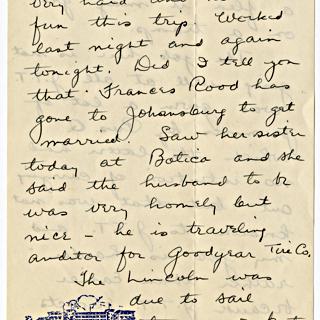 very hard and no
fun this trip. Worked
last night and again
tonight. Did I tell you
that Frances Rood has
gone to Johansburg to get
married. Saw her sister
today at Batica and she
said the husband to be
was very homely but
nice – he is traveling
auditor for Goodyear Tire Co.
The Lincoln was
due to sail